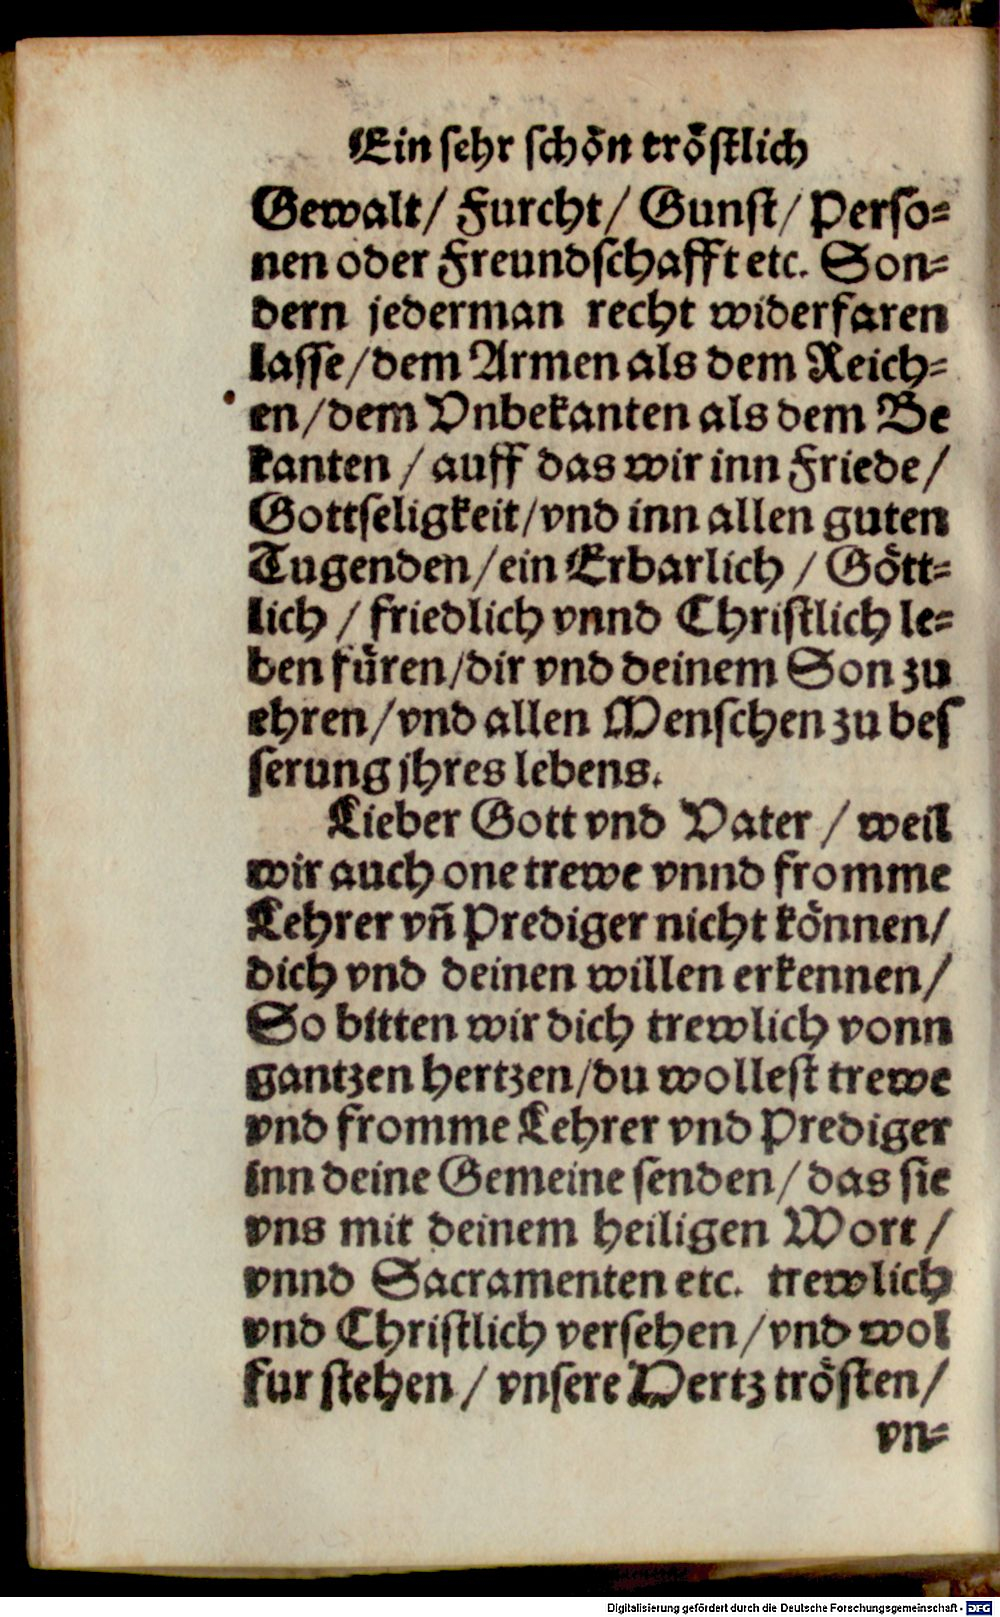 Ein sehr schön tröstlich
Gewalt/ Furcht/ Gunst/ Perso=
nen oder Freundschafft etc. Son=
dern jederman recht widerfaren
lasse/dem Armen als dem Reich=
en/dem Vnbekanten als dem Be
kanten / auff das wir inn Friede/
Gottseligkeit/vnd inn allen guten
Tugenden/ein Erbarlich / Gött=
lich / friedlich vnnd Christlich le=
ben füren/dir vnd deinem Son zu
ehren/vnd allen Menschen zu bes
serung jhres lebens.
Lieber Gott vnd Vater / weil
wir auch one trewe vnnd fromme
Lehrer vñ Prediger nicht können/
dich vnd deinen willen erkennen/
So bitten wir dich trewlich vonn
gantzen hertzen/du wollest trewe
vnd fromme Lehrer vnd Prediger
inn deine Gemeine senden/das sie
vns mit deinem heiligen Wort /
vnnd Sacramenten etc. trewlich
vnd Christlich versehen/vnd wol
fur stehen / vnsere Hertz trösten/
vn=
Digitalisierung gefördert durch die Deutsche Forschungsgemeinschaft - DFG